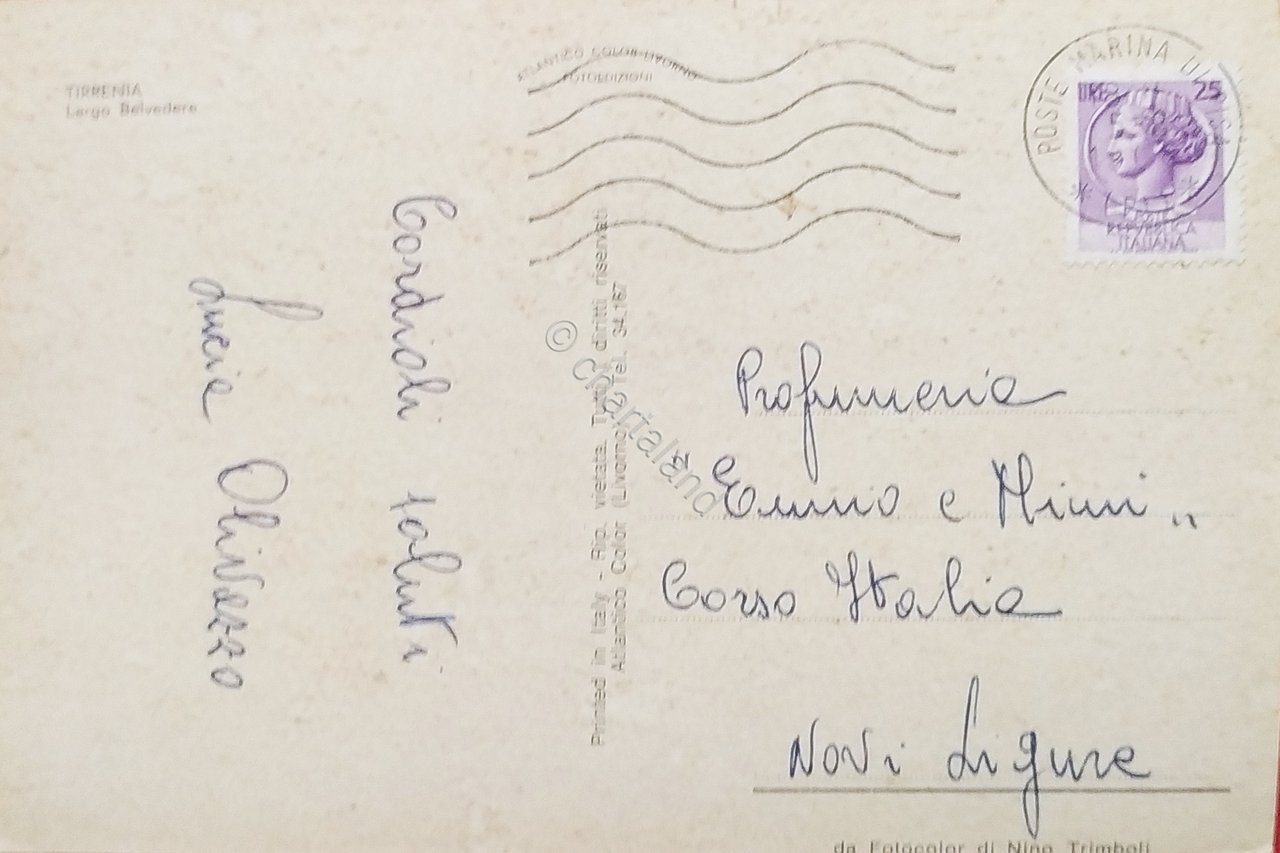 TIRRENIA
Largo Belvedere
ATLANTICO COLOR LIVORNO
FOTOEDIZIONI
POSTE MARINA DI
LIRE 25
POSTE
REPVBBLICA
ITALIANA
Cordiali saluti
Lucia Olivazzo
Printed in Italy - Rip. vietata. Tutti i diritti riservati
Atlantico Color (Livorno) Tel. 34.167
© Chartaland
Profumeria
"Ennio e Mimi"
Corso Italia
Novi Ligure
da Fotocolor di Nino Trimboli